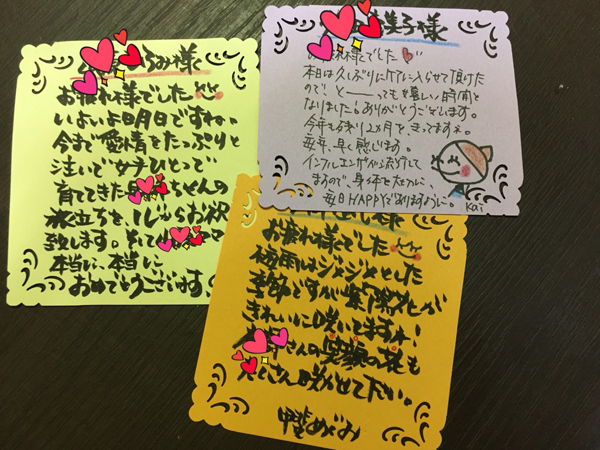 ろみ様
お疲れ様でした
いよいよ明日ですね、
今まで愛情をたっぷりと
注いで女手ひとつで
育ててきた ちゃんの
旅立ちを、心からお祝
致します。そして
本当に、本当に
おめでとうございます
美子様
お疲れ様でした
本日は久しぶりに 入らせて頂けた
ので、とーっても嬉しい時間と
なりました。ありがとうございます。
今年も残り2ヵ月を、きってますネ。
毎年、早く感じます。
インフルエンザが流行して
ますので、身体を大切に、
毎日HAPPYでありますように。
Kai
様
お疲れ様でした
梅雨はジメジメとした
季節ですが紫陽花が
きれいに咲いてますネ、
さんの笑顔の花も
たくさん咲かせて下さい。
めぐみ